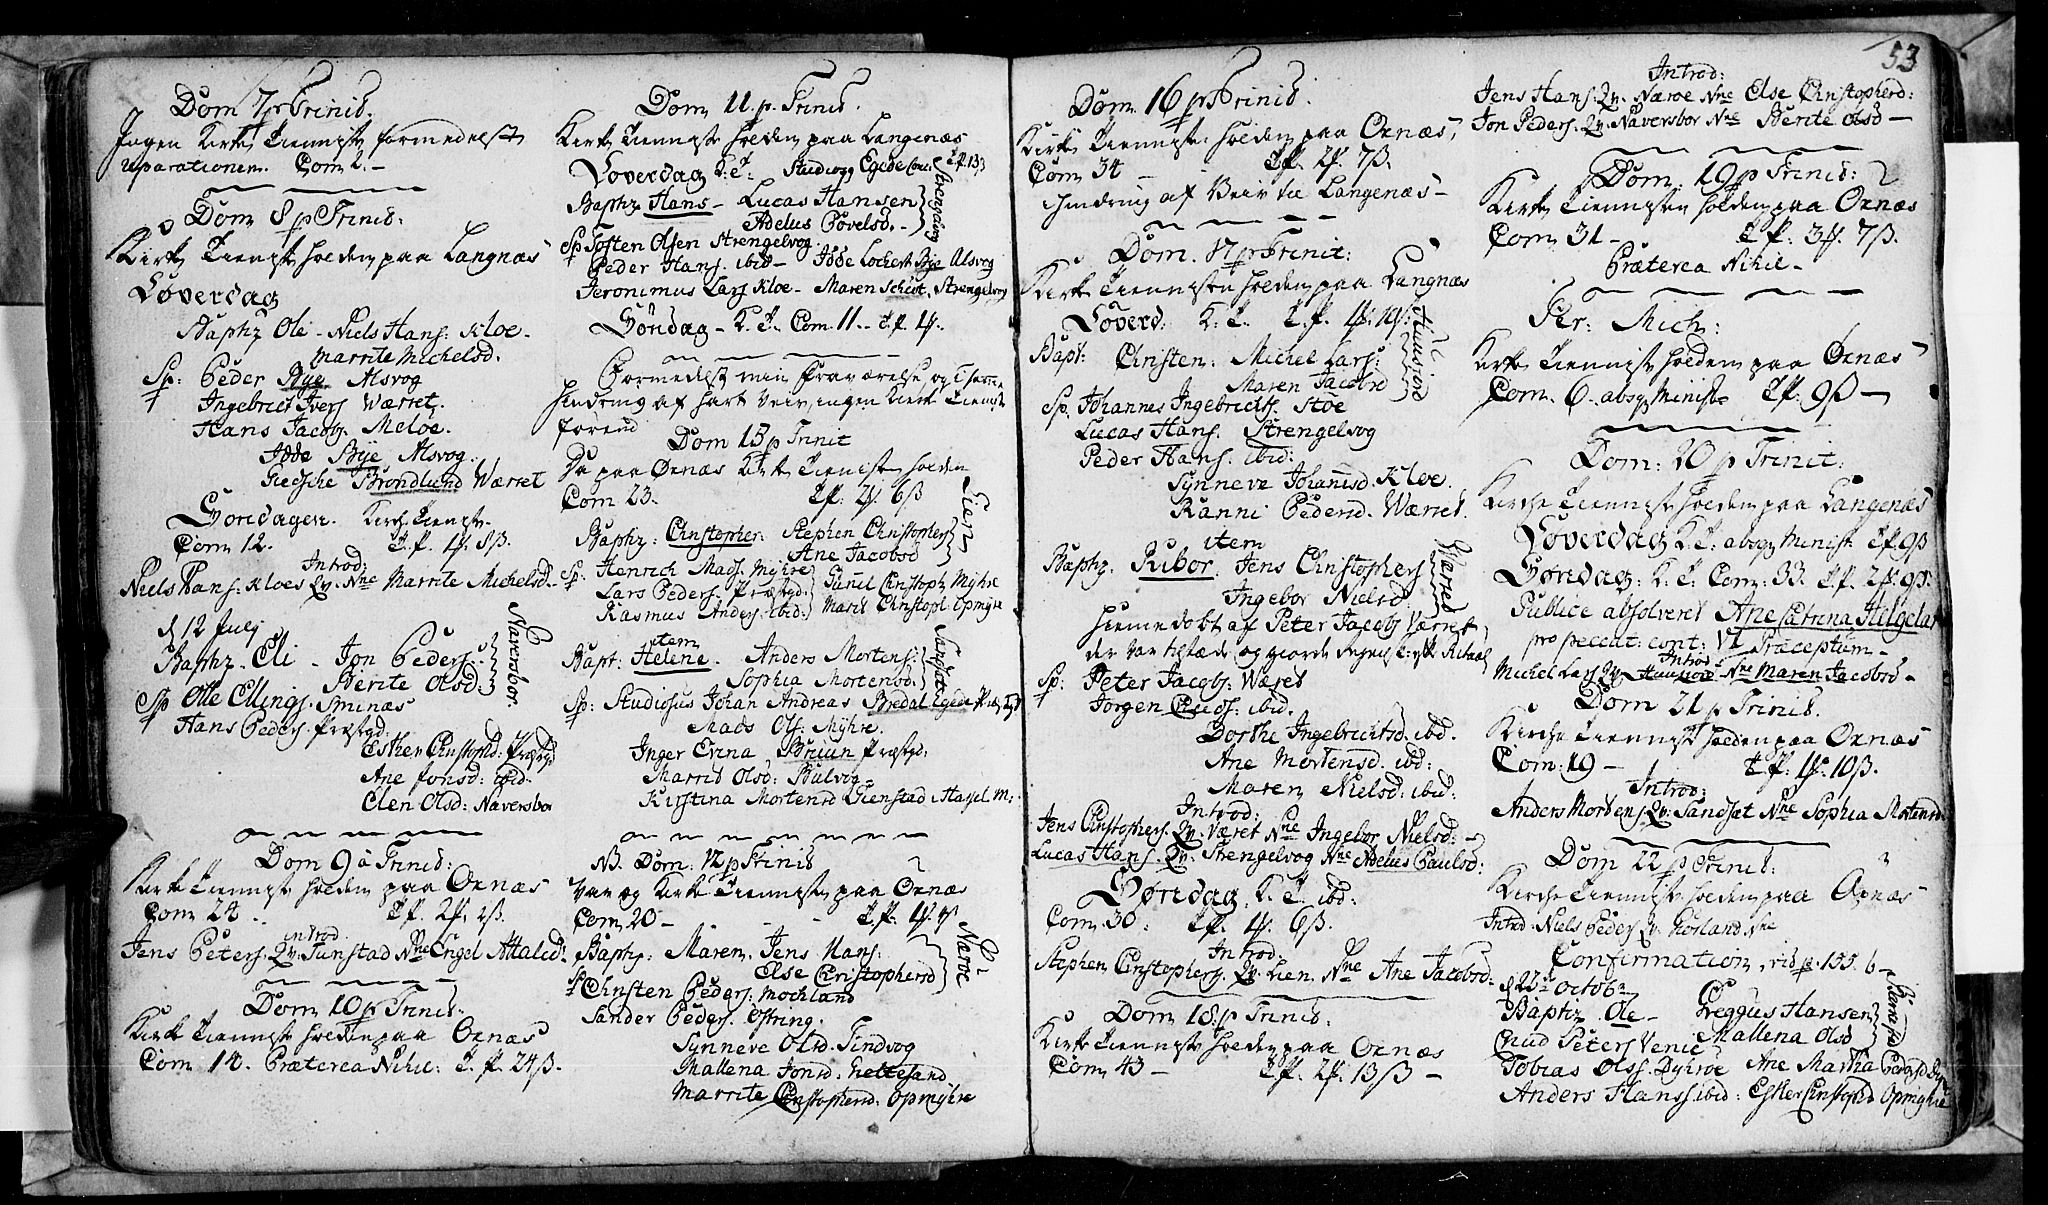 Dom 7 p Trinid.
Ingen Kirke Tienniste formedelst
reparationen. Com 2. -
Dom 8 p Trinid:
Kirke Tienniste holden paa Langnæs
Løverdag
Baptz Ole - Niels Hans: Kloe -
Marrite Michelsd.
Sp: Peder Bye Alsvog
Ingebrict Ivers Wærret
Hans Jacobs. Meloe.
Idde Bye Alsvog.
Giedsche Brondlund Wærret
Søndagen. Kirche Tieniste
Com 12. T.P. 1 8ß.
Introd:
Niels Hans: Kloes Qv. Nne Marrite Michelsd -
d 12 Julj
Baptz. Eli - Jon Peders.
Berite Olsd:
Naversbor
Sp Olle Ellings. Sminæs
Hans Peders. Præstgd.
Esther Christophd: Præstgd
Ane Jonsd: ibid.
Elen Olsd: Naversbor
Dom 9 a Trinid:
Kirke Tienniste holden paa Ornæs
Com 24 .. T.P. 2
introd.
Jens Peters. Qv: Tunstad Nne Engel Attalied
Dom 10 p Trinid:
Kirke Tienniste holden paa Ornæs
Com 10. Præterea Nihil: T.P. 24ß.
Dom 11. p. Trinid.
Kirke Tienniste holden paa Langenæs
Løverdag K: T: Studioso Egede T.P. 13ß
Baptz Hans - Lucas Hansen
Adelus Povelsd. -
Strengelvog
Sp Tosten Olsen Strengelvog
Peder Hans. ibid - Idde Lochert Bye Alsvog
Jeronimus Lars Kloe - Maren Schiot, Strengelvog
Søndag - K. T. Com. 11. - T.P. 1
Formedelst min Fraværelse og
hindring af hart Veir, ingen Kirke Tienniste
forend
Dom 15 p Trinit
Da paa Ørnæs Kirke Tienniste holden
Com 23. T.P. 2 6ß
Baptz: Christopher. Stephen Christophers
Ane Jacobsd
Lien
Sp: Henrich Mads. Myhre
Lars Peders. Præstgd: Gunil Christoph. Myhre
Rasmus Anders. ibid: Marit Christoph. Opmyhre
item
Bapt: Helene. Anders Mortens:
Sophia Mortensd.
Sandsæt
Sp: Studiosus Johan Andreas Bredal Egede
Mads Ols: Myhre.
Inger Erina Bruun Præstgd:
Marrit Olsd: Kalvog -
Kirstina Mortensd Tienstad Hassel M:
NB. Dom. 12 p Trinid
Var og Kirke Tienniste paa Ornæs
Com 20 - - - T.P. 1
Baptz: Maren. Jens Hans:
Else Christopherd
Næroe
Sp Christen Peders: Mochland
Sander Peders. Ostring.
Synneve Olsd. Tindvog
Mallena Jonsd: Heltesand
Marrite Christopherd: Opmyhre
53
Dom 16 p Trinid.
Kirke Tienniste holden paa Ornæs,
Com 34 - T.P. 2 7ß.
hindring af Veir til Langenæs -
Dom. 17 p Trinit:
Kirke Tiennisten holden paa Langnæs
Løverd: K: T. T.P. 1
Bapt: Christen: Michel Lars:
Maren Jacobsd
Sp. Johannes Ingebrictss. Stoe
Lucas Hans. Strengelvog
Peder Hans: ibid:
Synneve Johannisd. Kloe.
Ranni Pedersd. Wærret.
item
Baptz. Ribor. Jens Christophers
Ingebor Nielsd.
Wæret
Hiemedobt af Peter Jacobs Værret
Sp: Peter Jacobs: Wæret
Jorgen Cnuds: ibid.
Dorthe Ingebrichtsd. ibd.
Ane Mortensd. ibd:
Maren Nielsd: ibid:
Introd:
Jens Christophers. Qv. Været Nne Ingebor Nielsd: -
Lucas Hans. Qv. Strengelvog Nne Adelus Paulsd:
Søndag. K. T. ibd:
Com. 30: T.P. 1 6ß.
Introd.
Stephen Christophers. Qv. Lien. Nne Ane Jacobsd.
Dom 18. p Trinid:
Kirke Tienniste holden paa Ornæs
Com 43 - T.P. 2 13ß -
Introd:
Jens Hans. Qv. Næroe Nne Else Christopherd:
Jon Peders. Qv. Naversbor Nne Berite Olsd -
Dom: 19 p Trinid:
Kirke Tiennisten holden paa Ornæs
Com 31 - T.P: 3 7ß.
Præterea Nihil -
Fer: Mich:
Kirke Tienniste holden paa Ørnæs
Com. 6. absq Minist: T.P: 9ß -
Dom: 20 p Trinit:
Kirche Tienniste holden paa Langenæs
Løverdag K: T: absq Minist. T.P. 9ß
Søndag: K. T. Com: 33. T.P. 2 9ß.
Publice absolveret Ane Catrina Helgelat
pro peccat: cont: VI Præceptum -
Introd:
Michel Lars Qv. Nne Maren Jacobsd -
Dom 21 p Trinid.
Kirche Tienniste holden paa Ornæs
Com: 19 - T.P: 1 10ß.
Introd:
Anders Mortens Qv: Sandsæt Nne Sophia Mortensd
Dom 22 p Trinid:
Kirche Tienniste holden paa Ornæs
Introd: Niels Peders Qv. Nne
Confirmation, vid p: 155. b -
d 22de Octobr
Baptiz Ole - Greggus Hansen
Mallena Olsd
Cnud Peters Venie
Tobias Olss. Dyhroe Ane Martha
Anders Hanss ibid: Esther Christophd Opmyhre